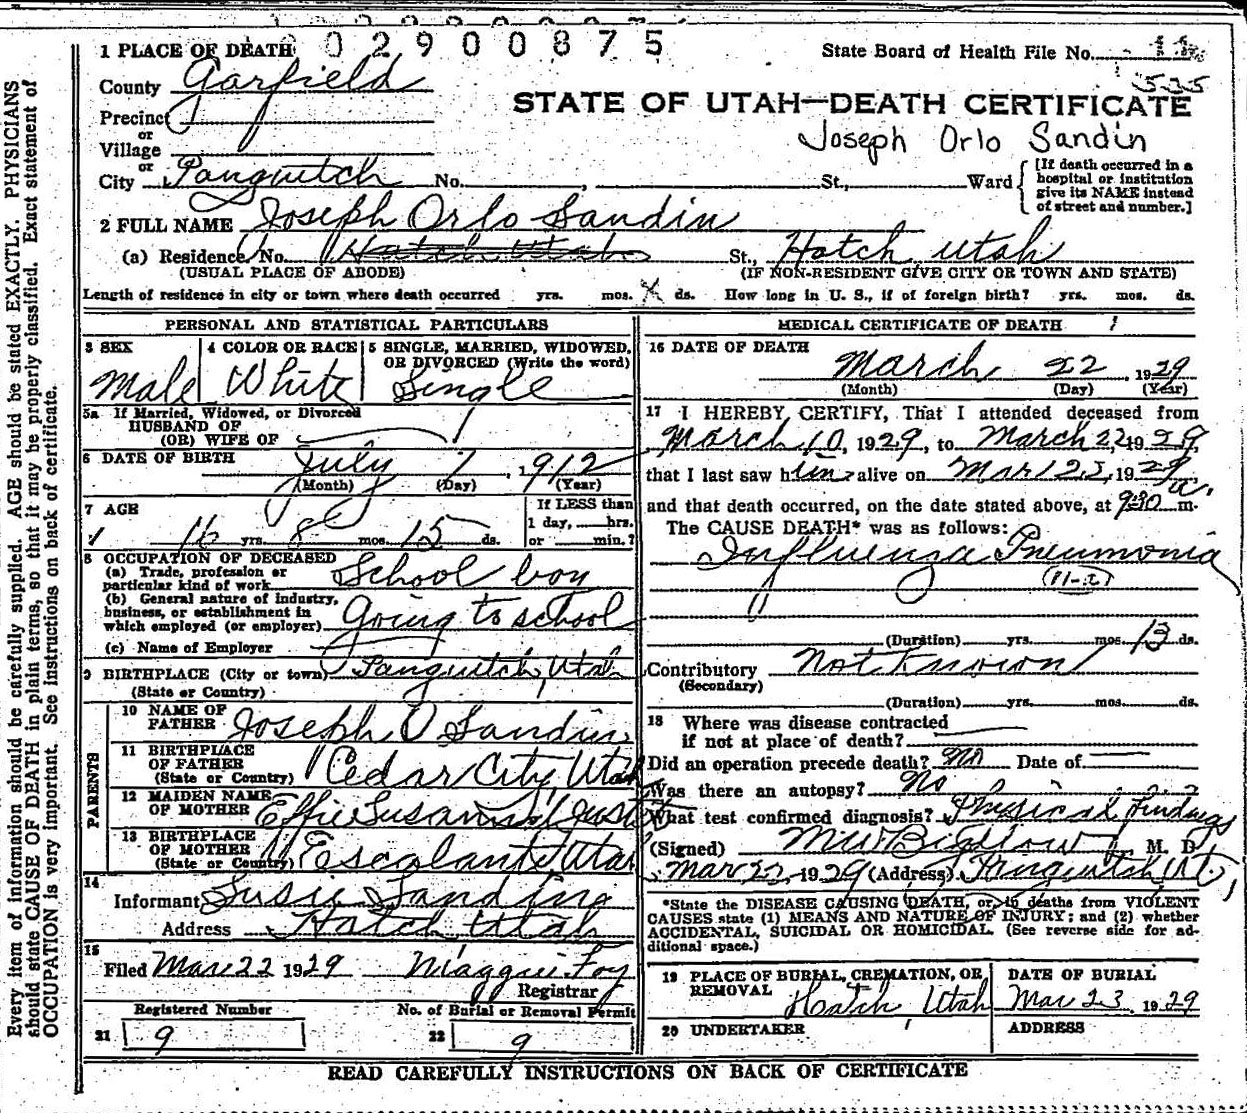 0 2 9 0 0 8 7 5
1 PLACE OF DEATH
State Board of Health File No.
535
County Garfield
STATE OF UTAH—DEATH CERTIFICATE
Precinct
or
Joseph Orlo Sandin
Village
or
City Panguitch No. , St., Ward
[If death occurred in a hospital or institution give its NAME instead of street and number.]
2 FULL NAME Joseph Orlo Sandin
(a) Residence No. Hatch Utah St., Hatch Utah
(USUAL PLACE OF ABODE) (IF NON-RESIDENT GIVE CITY OR TOWN AND STATE)
Length of residence in city or town where death occurred yrs. mos. X ds. How long in U. S., if of foreign birth? yrs. mos. ds.
PERSONAL AND STATISTICAL PARTICULARS
3 SEX Male
4 COLOR OR RACE White
5 SINGLE, MARRIED, WIDOWED, OR DIVORCED (Write the word) Single
5a If Married, Widowed, or Divorced
HUSBAND OF
(OR) WIFE OF
6 DATE OF BIRTH July 7, 1912
(Month) (Day) (Year)
7 AGE 16 yrs. 8 mos. 15 ds.
If LESS than
1 day, hrs.
or min.?
8 OCCUPATION OF DECEASED
(a) Trade, profession or
particular kind of work School boy
(b) General nature of industry,
business, or establishment in
which employed (or employer) Going to school
(c) Name of Employer
9 BIRTHPLACE (City or town) Panguitch, Utah
(State or Country)
PARENTS
10 NAME OF
FATHER Joseph O Sandin
11 BIRTHPLACE
OF FATHER
(State or Country) Cedar City, Utah
12 MAIDEN NAME
OF MOTHER Effie Susannah
13 BIRTHPLACE
OF MOTHER
(State or Country) Escalante Utah
14
Informant Susie Sandin
Address Hatch Utah
15
Filed Mar 22 1929 Maggie Foy
Registrar
Registered Number No. of Burial or Removal Permit
21 9 22 9
MEDICAL CERTIFICATE OF DEATH
16 DATE OF DEATH
March 22, 1929
(Month) (Day) (Year)
17 I HEREBY CERTIFY, That I attended deceased from
March 10, 1929, to March 22, 1929,
that I last saw him alive on Mar 22, 1929
and that death occurred, on the date stated above, at 9:30 a. m.
The CAUSE DEATH* was as follows:
Influenza Pneumonia
(11-a)
(Duration) yrs. mos. 13 ds.
Contributory Not Known
(Secondary)
(Duration) yrs. mos. ds.
18 Where was disease contracted
if not at place of death?
Did an operation precede death? no Date of
Was there an autopsy? No
What test confirmed diagnosis? Physical findings
(Signed) M W Bigelow, M. D.
Mar 22, 1929 (Address) Panguitch Ut,
*State the DISEASE CAUSING DEATH, or, in deaths from VIOLENT
CAUSES state (1) MEANS AND NATURE OF INJURY; and (2) whether
ACCIDENTAL, SUICIDAL OR HOMICIDAL. (See reverse side for ad-
ditional space.)
19 PLACE OF BURIAL, CREMATION, OR
REMOVAL Hatch, Utah
DATE OF BURIAL
Mar 23 1929
20 UNDERTAKER
ADDRESS
READ CAREFULLY INSTRUCTIONS ON BACK OF CERTIFICATE
Every item of information should be carefully supplied. AGE should be stated EXACTLY. PHYSICIANS
should state CAUSE OF DEATH in plain terms, so that it may be properly classified. Exact statement of
OCCUPATION is very important. See instructions on back of certificate.